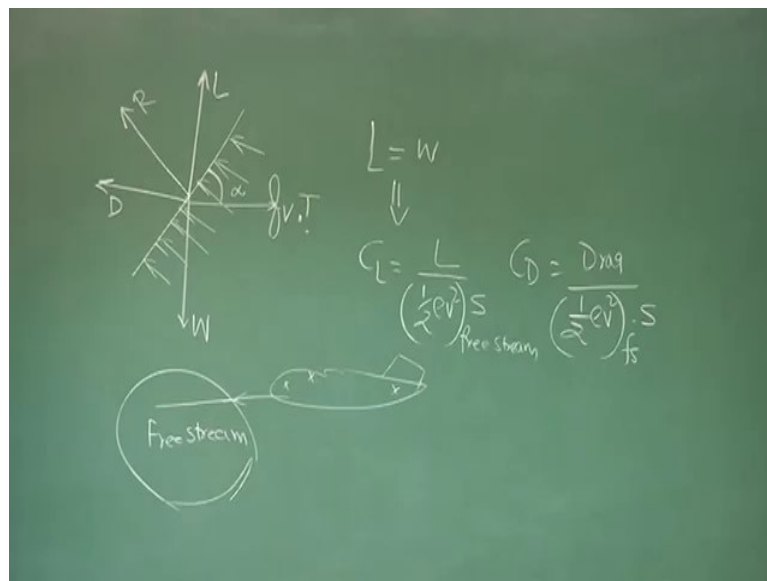 R
L
α
D
V.T
W
L = W
⇓
C_L = L / (1/2 ρv²)_freestream S
C_D = Drag / (1/2 ρv²)_fs . S
freestream